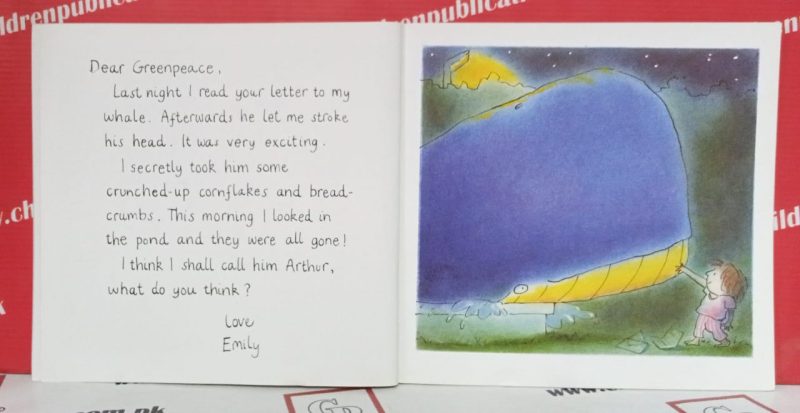 ildrenpublicati
enpublicatio
Dear Greenpeace,
Last night I read your letter to my
whale. Afterwards he let me stroke
his head. It was very exciting.
I secretly took him some
crunched-up cornflakes and bread-
crumbs. This morning I looked in
the pond and they were all gone!
I think I shall call him Arthur,
what do you think?
Love
Emily
y.ch
ildren
www.